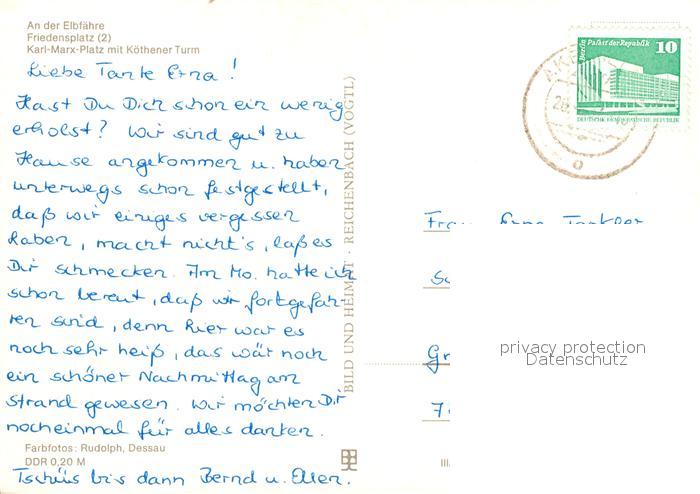 An der Elbfähre
Friedensplatz (2)
Karl-Marx-Platz mit Köthener Turm
Liebe Tante Erna!
Hast Du Dich schon ein wenig
erholst? Wir sind gut zu
Hause angekommen u. haben
unterwegs schon festgestellt,
daß wir einiges vergessen
haben, macht nicht's, laß es
Dir schmecken. Am Mo. hatte ich
schon bereut, daß wir fortgefah-
ren sind, denn hier war es
noch sehr heiß, das wär noch
ein schöner Nachmittag am
Strand gewesen. Wir möchten Dir
nocheinmal für alles danken.
Farbfotos: Rudolph, Dessau
DDR 0,20 M
Tschüs bis dann Bernd u. Ellen.
BILD UND HEIMAT REICHENBACH (VOGTL)
Berlin Palast der Republik
10
DEUTSCHE DEMOKRATISCHE REPUBLIK
Erna
privacy protection
Datenschutz